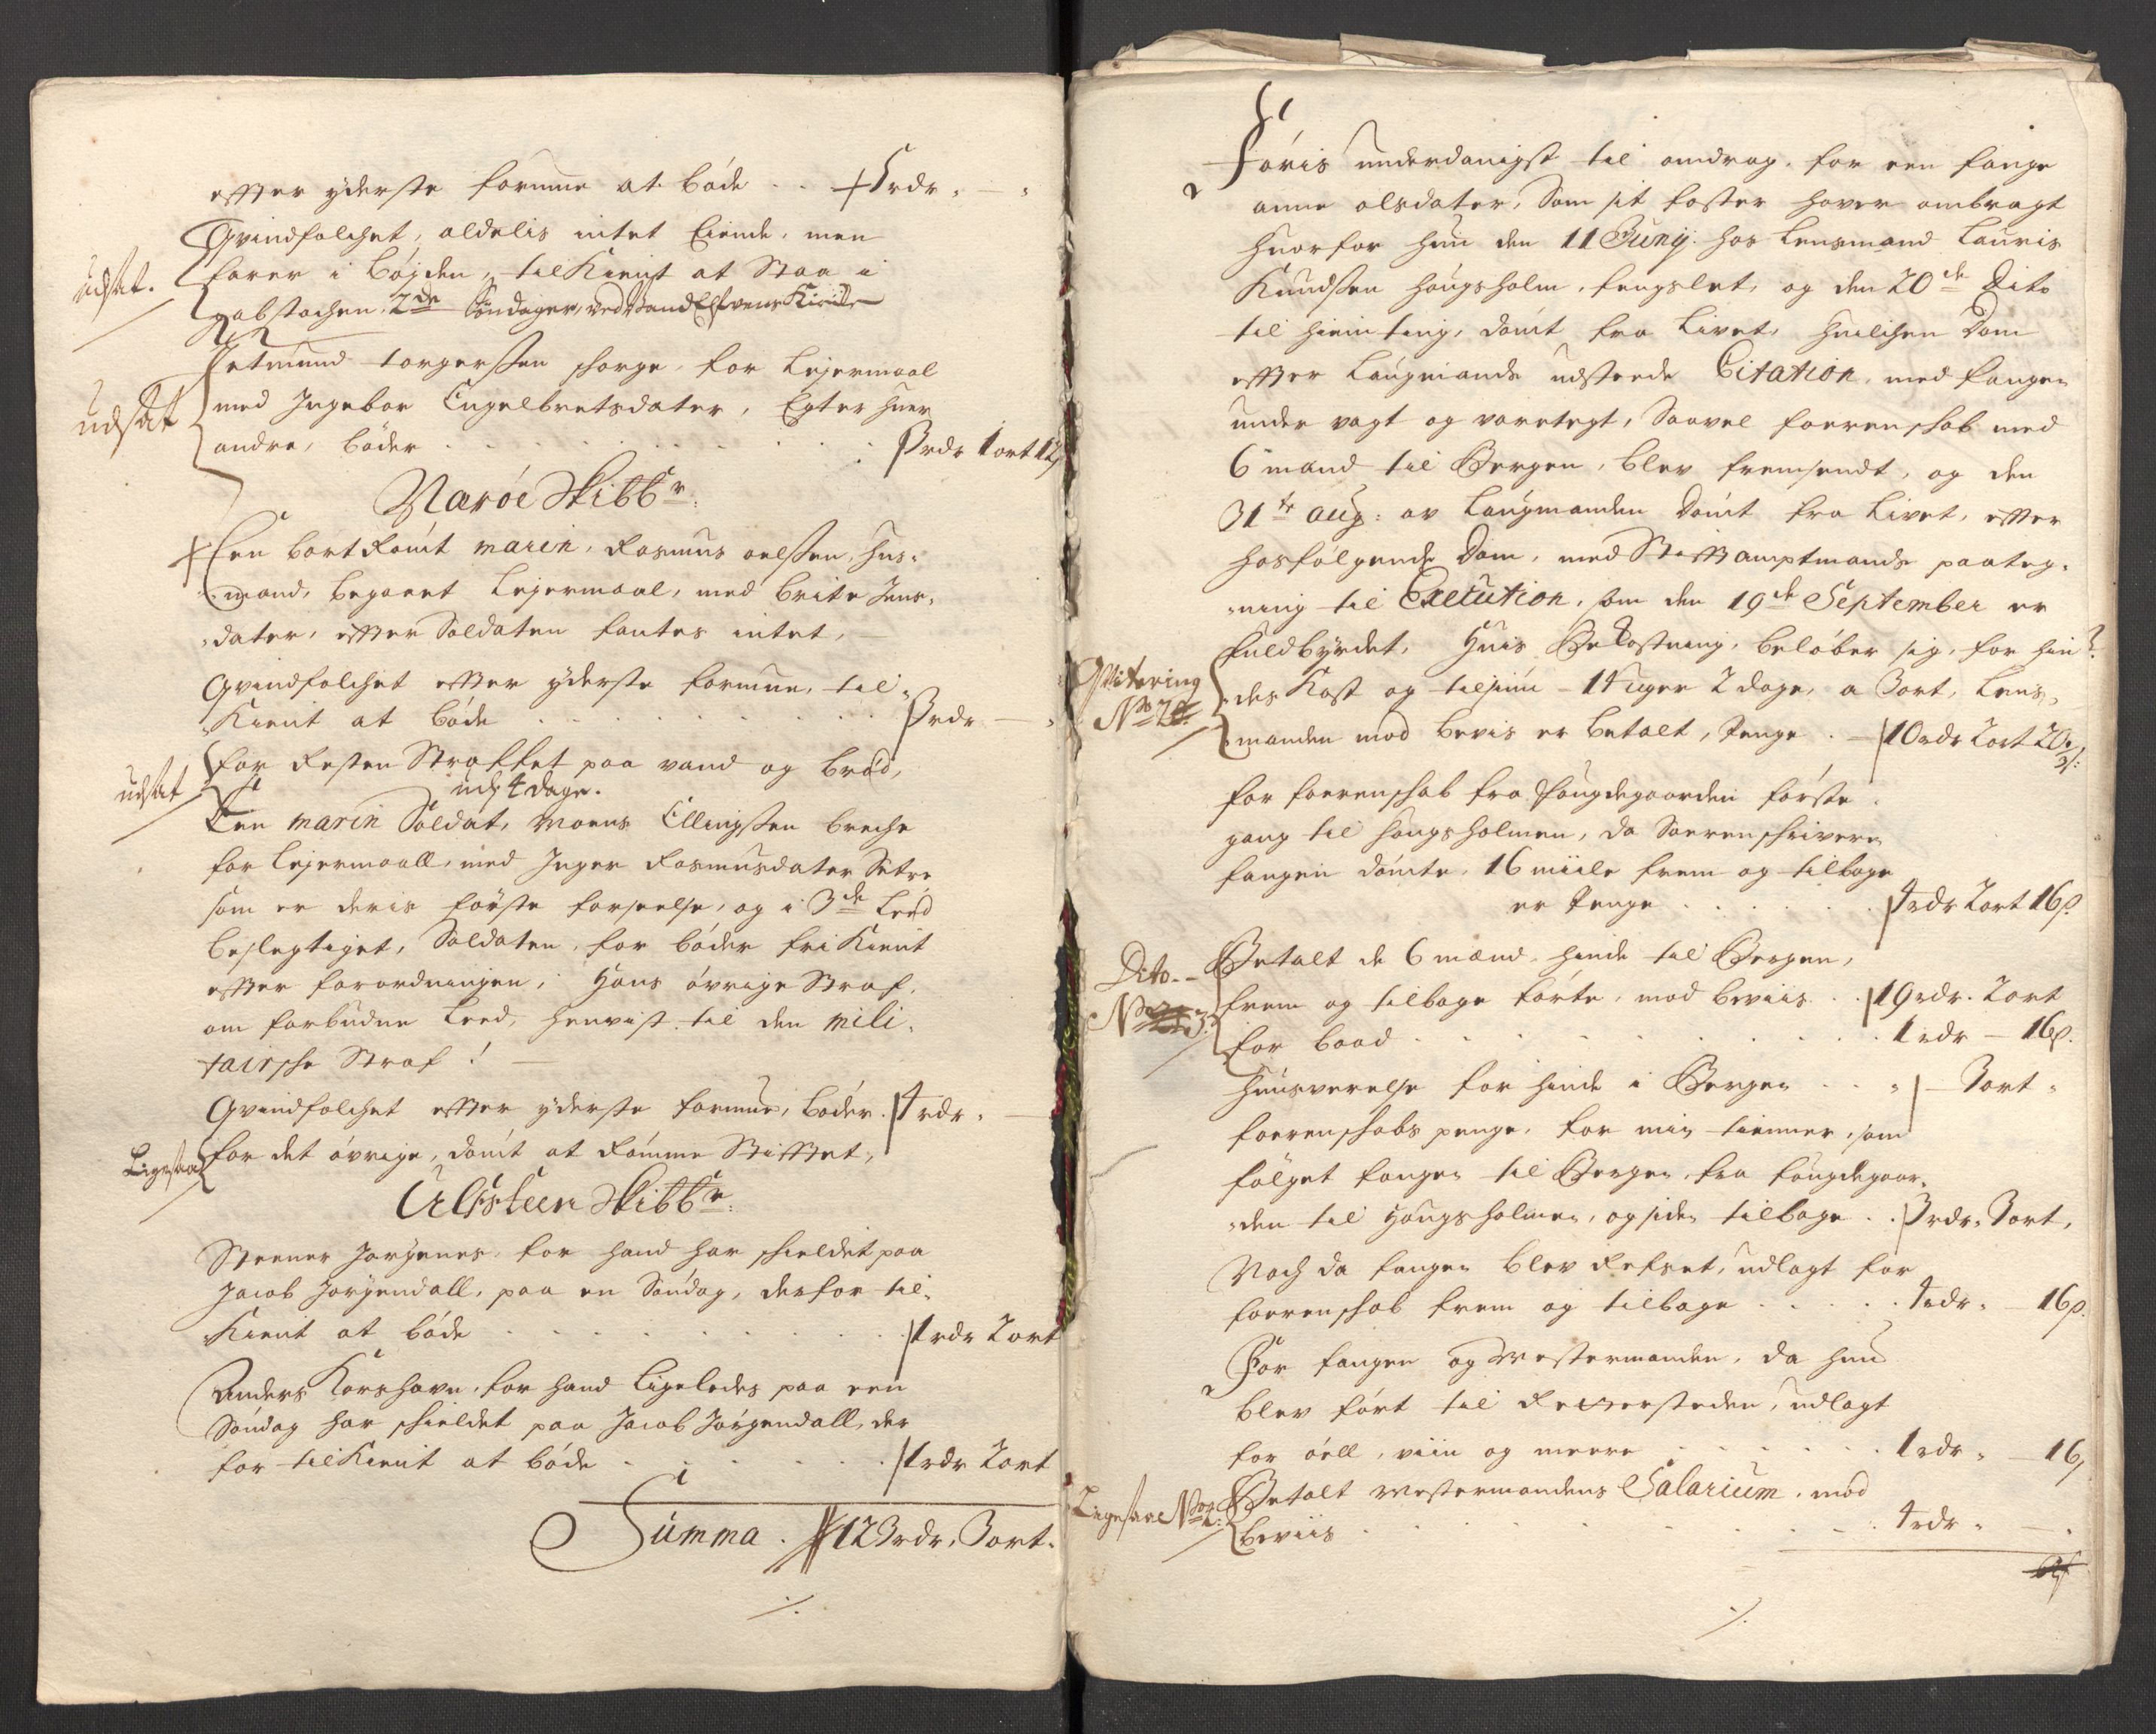 effter yderste formue at bøde . . 5 rdr " — "
Qvindfolchet, aldelis intet Eiende, men
udsat.
farer i bøjden, tilKient at Staa i
gabstochen 2de Søndager, ved VandElfvens Kircke
Jetmund torgerssen schorge, for Lejermaal
udsat
med Ingebor Engelbretsdater, Egter huer
andre, bøder . . . . . 3 rdr 1 ort 12
Narøe Skibbr:
Een bort Rømt marin, Rasmus oelssen, Hus-
mand, begaaet Lejermaal, med Brite Jens-
dater, effter Soldaten fantes intet,
Qvindfolchet effter yderste formue, til-
Kient at bøde . . . . . 3 rdr —
for Resten Straffet paa vand og brød,
udsat
udj 4 dage.
Een marin Soldat, Moens Ellingssen breche
for Lejermaall, med Inger Rasmusdater Setre
som er deris første forseelse, og i 3de Leed
beslegtiget, Soldaten, for bøder fri Kient
effter forordningen, Hans øvrige Straf,
om forbudne Leed, henvist til den mili-
tairsche Straf ! —
Qvindfolchet effter yderste formue, bøder . 4 rdr "
Ligesaa
for det øvrige, dømt at Rømme Stifftet,
Ulfsteen Skibbr:
Steener Jorgenes, for hand har schieldet paa
Jacob Jorgendall, paa en Søndag, derfor til-
Kient at bøde . . . . . 1 rdr 2 ort
Anders Korshavn, for hand ligeledes paa een
Søndag har schieldet paa Jacob Jørgendall, der
for tilKient at bøde . . . . . 1 rdr 2 ort
Summa . 123 rdr, 3 ort.
./.
Føris underdanigst til omdrag, for een fange
anne olsdater, Som sit foster haver ombragt
huorfor hun den 11 Junij. hos Lensmand Lauris
Knudssen Haugsholm, fengslet, og den 20de Dito
til hiemting, dømt fra Livet, huilchen Dom
effter Laugmands udsteede Citation, med fangen
under vagt og varetegt, Saavel foerenschab med
6 mand til Bergen, blev fremsendt, og den
31te aug: av Laugmanden Dømt fra Livet, effter
hosfølgende Dom, med Stifftamptmands paateg-
ning til Execution, som den 19de September er
fuldbyrdet, Huis Bekostning, beløber sig, for hin-
Qvitering
des Kost og tilsiun 14 uger 2 dage, a 3 ort, Lens-
manden mod bevis er betalt, Penge . — 10 rdr 2 ort 20
s:
for foerenschab fra Fougdegaarden første
gang til Haugsholmen, da Sorenschriveren
fangen dømte, 16 miile frem og tilbage
er Penge . . . . . 4 rdr 2 ort 16 s.
Dito
Betalt de 6 mænd, hinde til Bergen,
frem og tilbage førte, mod beviis . . 19 rdr. 2 ort
for baad . . . . . 1 rdr — 16 s.
Huusverelse for hinde i Bergen . . " — 3 ort "
foerenschabs penge, for min tienner, som
følget fangen til Bergen, fra fougdegaar-
den til Hougsholmen, og siden tilbage . . 3 rdr. 3 ort,
Noch da fangen blev Rettet, udlagt for
foerenschab frem og tilbage . . . . . 4 rdr " 16 s.
For fangen og Mestermanden, da hun
blev ført til Retterstedet, udlagt
for øell, viin og meere . . . . . 1 rdr " — 16,
Ligesaae No 4:
Betalt Mestermandens Salarium, mod
beviis . . . . . 4 rdr " —
./.